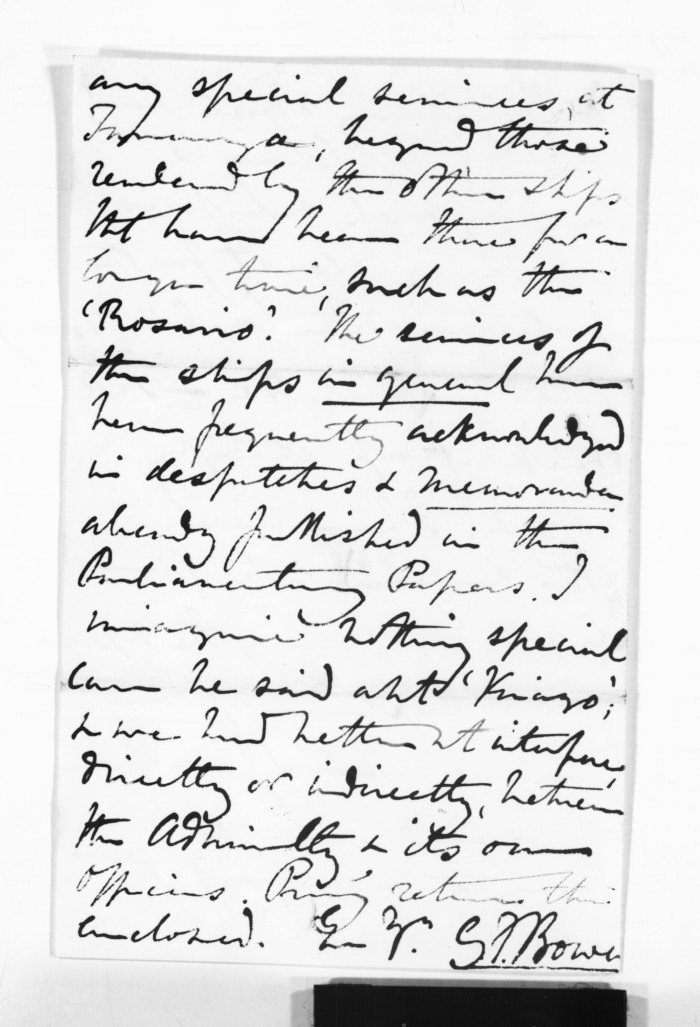 any special services, at
Tauranga, beyond those
rendered by the other ships
tht have been there for a
longer time, such as the
'Rosario'. The services of
the ships in general have
been frequently acknowledged
in despatches & memoranda
already published in the
Parliamentary Papers. I
imagine nothing special
can be said abt 'Virago';
& we had better nt interfere,
directly or indirectly, between
the Admiralty & its own
officers. Pray return the
enclosed. Ever Yrs. G.F. Bowen